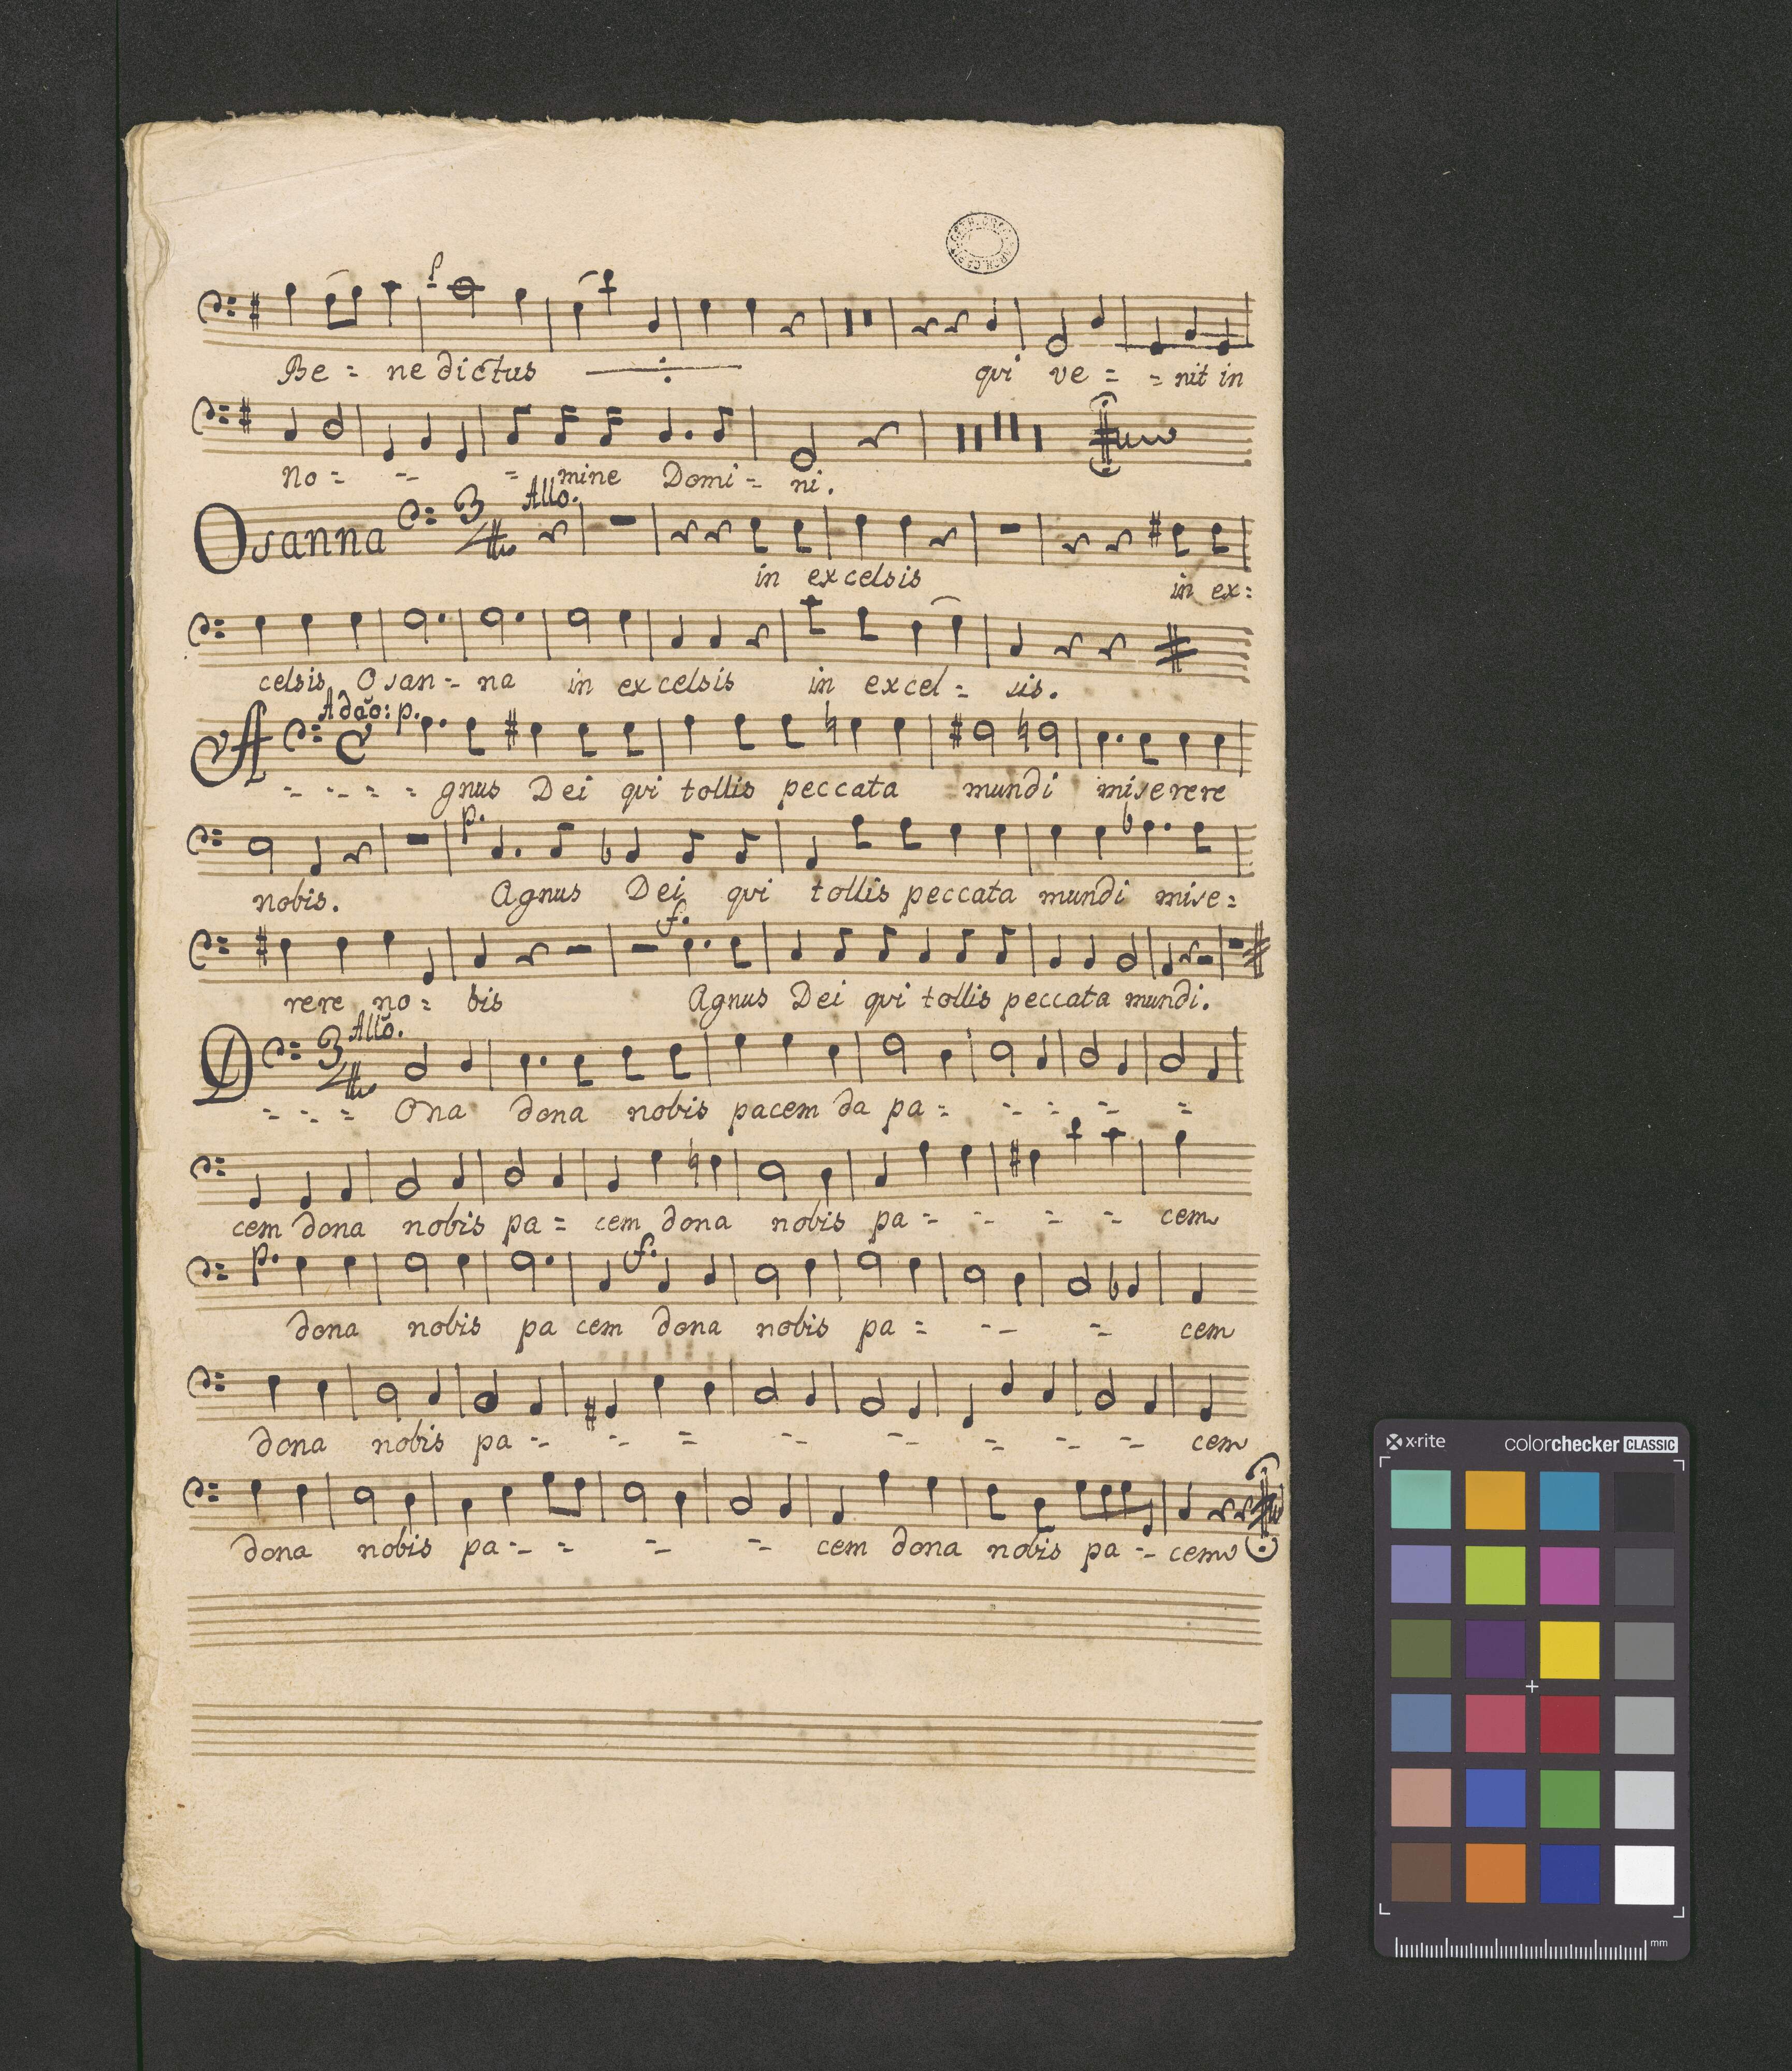 Be = ne dictus qui ve = = nit in
no = -- = mine Domi = ni.
Allo.
Osanna 3/4 in excelsis in ex:
celsis Osan = na in excelsis in excel = sis.
Adão: p.
A - - = = gnus Dei qui tollis peccata mundi miserere
p.
nobis. Agnus Dei qui tollis peccata mundi mise =
f.
rere no = bis Agnus Dei qui tollis peccata mundi.
Allõ.
D 3/4 = - = Ona dona nobis pacem da pa = = = = =
cem dona nobis pa = cem dona nobis pa = = = = cem
p. f.
dona nobis pa cem dona nobis pa = -- = cem
dona nobis pa = = = = = = = = cem
dona nobis pa = = = = cem dona nobis pa = cem
x·rite colorchecker CLASSIC
mm